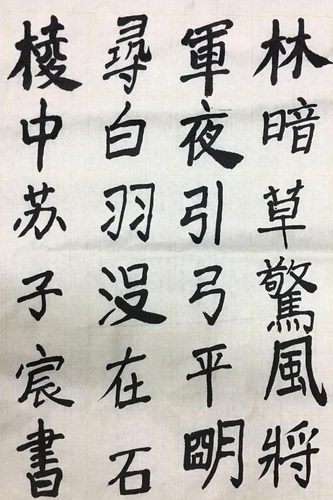 林暗草驚風將
軍夜引弓平明
尋白羽没在石
棱中苏子宸書